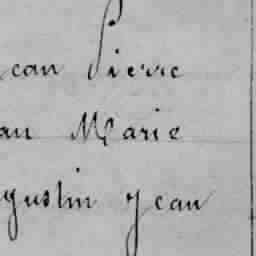 ean Pierre
an Marie
gustin jean